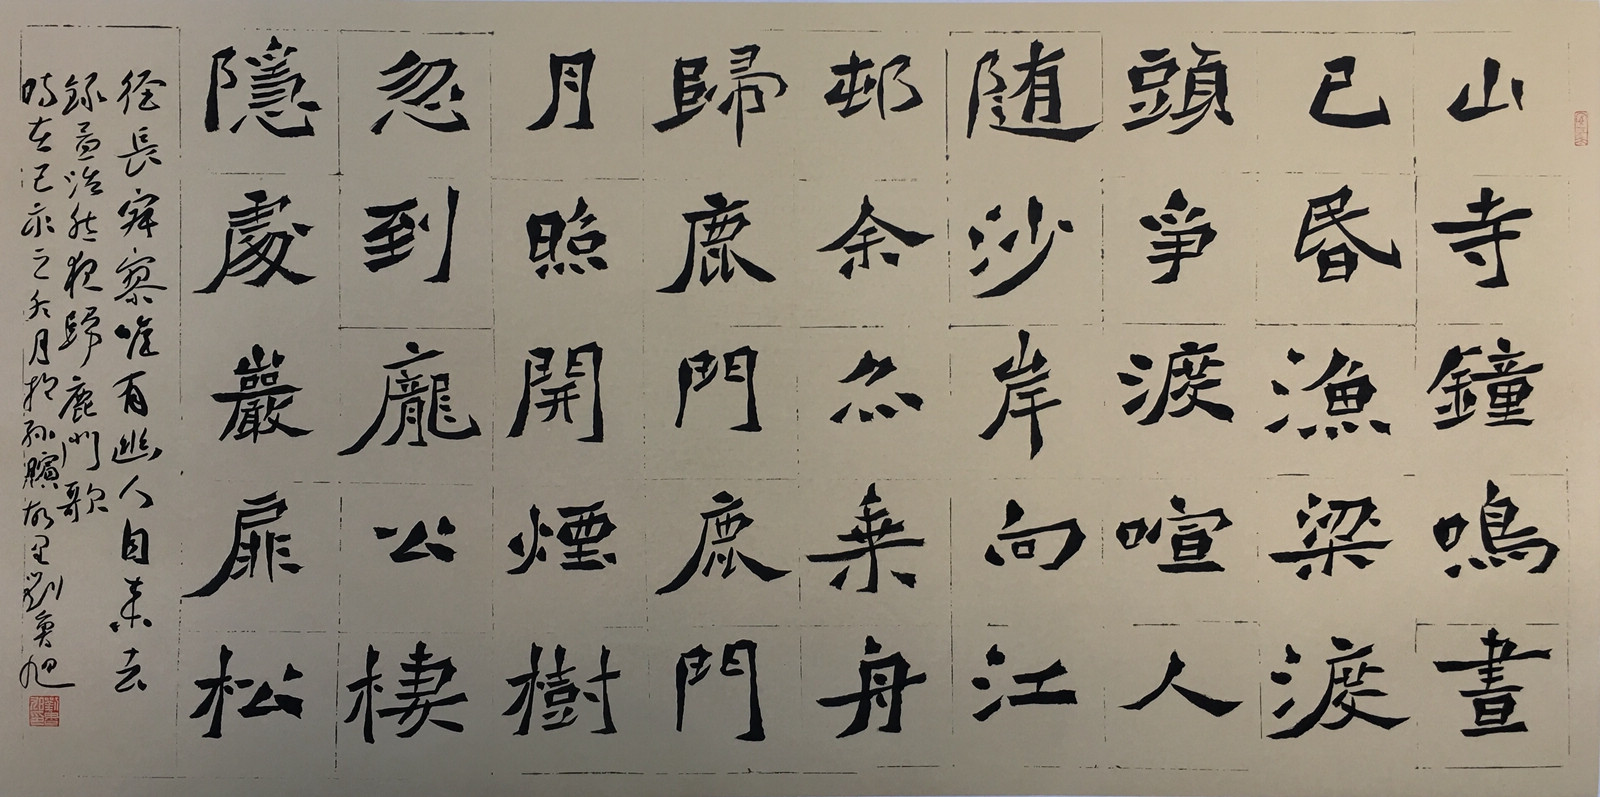 山寺鐘鳴晝
已昏漁梁渡
頭爭渡喧人
随沙岸向江
邨余亦乗舟
歸鹿門鹿門
月照開煙樹
忽到龐公棲
隱處巖扉松
徑長寂寥唯有幽人自来去
錄孟浩然夜歸鹿門歌
時在己亥之冬月於孫臏故里劉旭